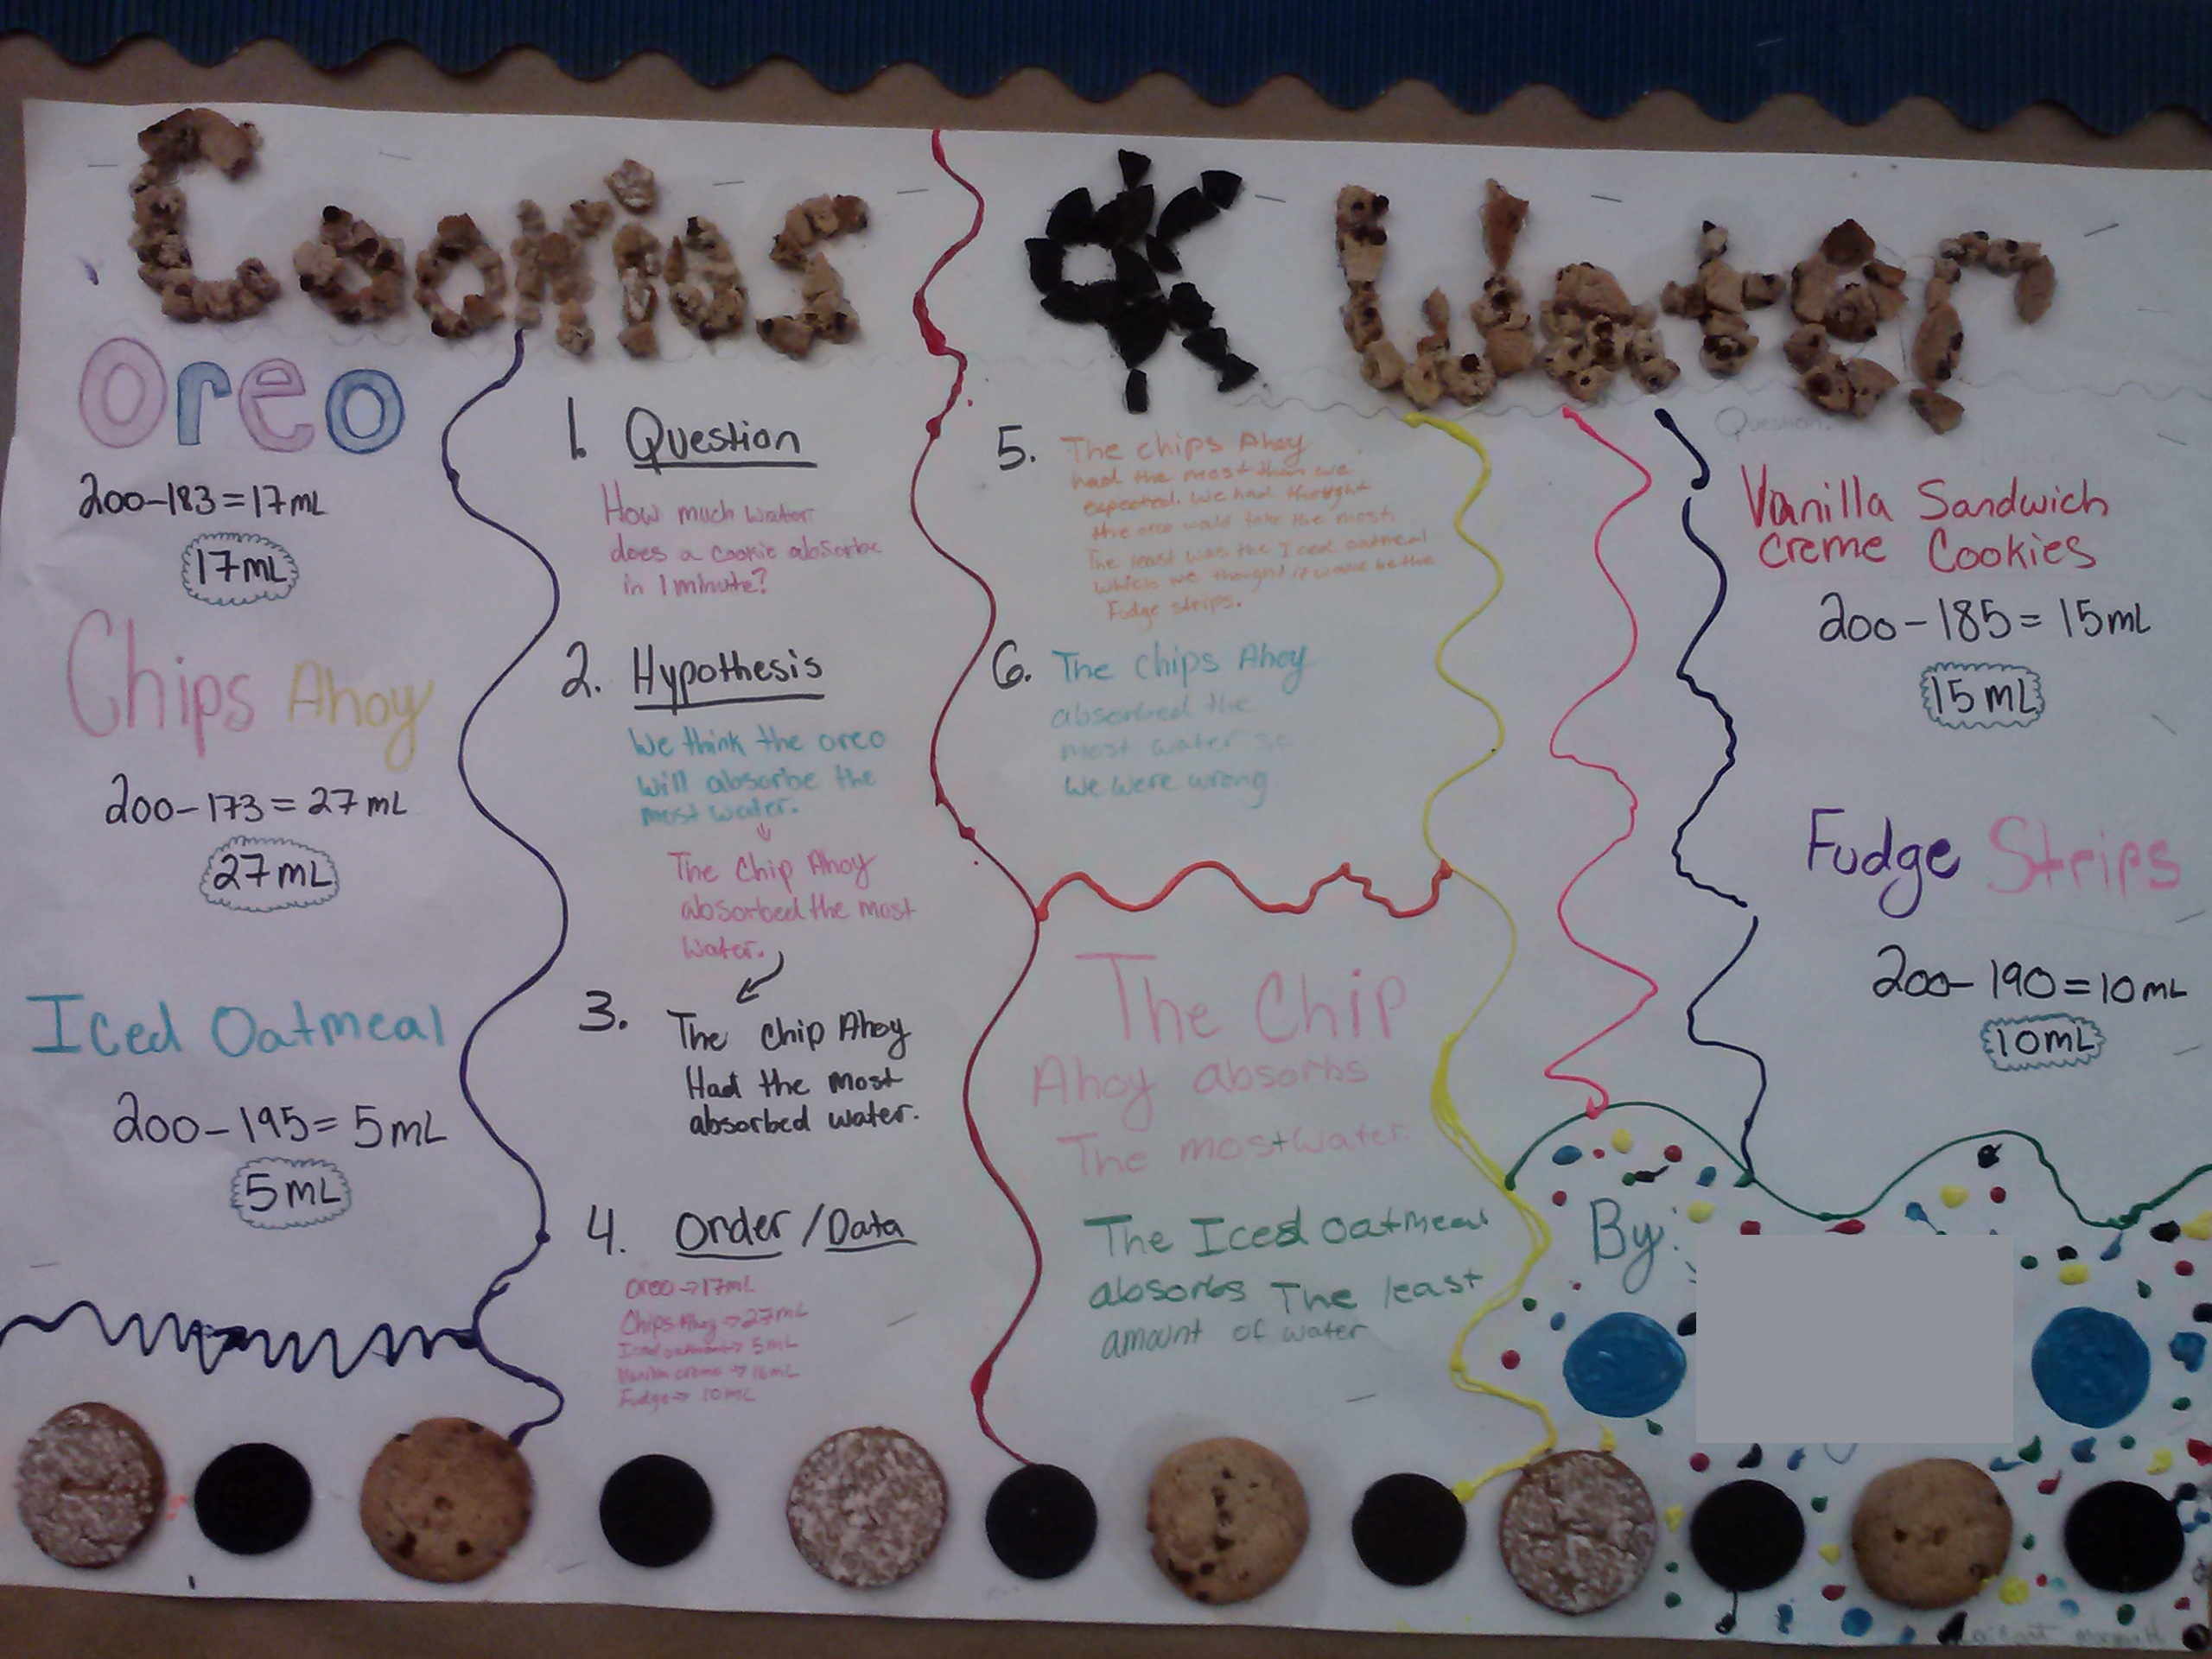 Cookies & Water
Oreo
200-183=17mL
17mL
Chips Ahoy
200-173=27mL
27mL
Iced Oatmeal
200-195=5mL
5mL
1. Question
How much water
does a cookie absorbe
in 1 minute?
2. Hypothesis
We think the oreo
will absorbe the
most water.
The Chip Ahoy
absorbed the most
water.
3. The Chip Ahoy
Had the most
absorbed water.
4. Order/Data
Oreo→17mL
Chips Ahoy→27mL
Iced oatmeal→5mL
Vanilla creme→
Fudge→10mL
5. The chips Ahoy
had the most than we
expected. We had thought
the oreo would take the most.
The least was the Iced oatmeal
which we thought it would be the
Fudge strips.
6. The chips Ahoy
absorbed the
most water so
We were wrong.
The Chip
Ahoy absorbs
The most water.
The Iced oatmeal
absorbs The least
amount of water
Question:
Vanilla Sandwich
Creme Cookies
200-185=15mL
15mL
Fudge Strips
200-190=10mL
10mL
By: